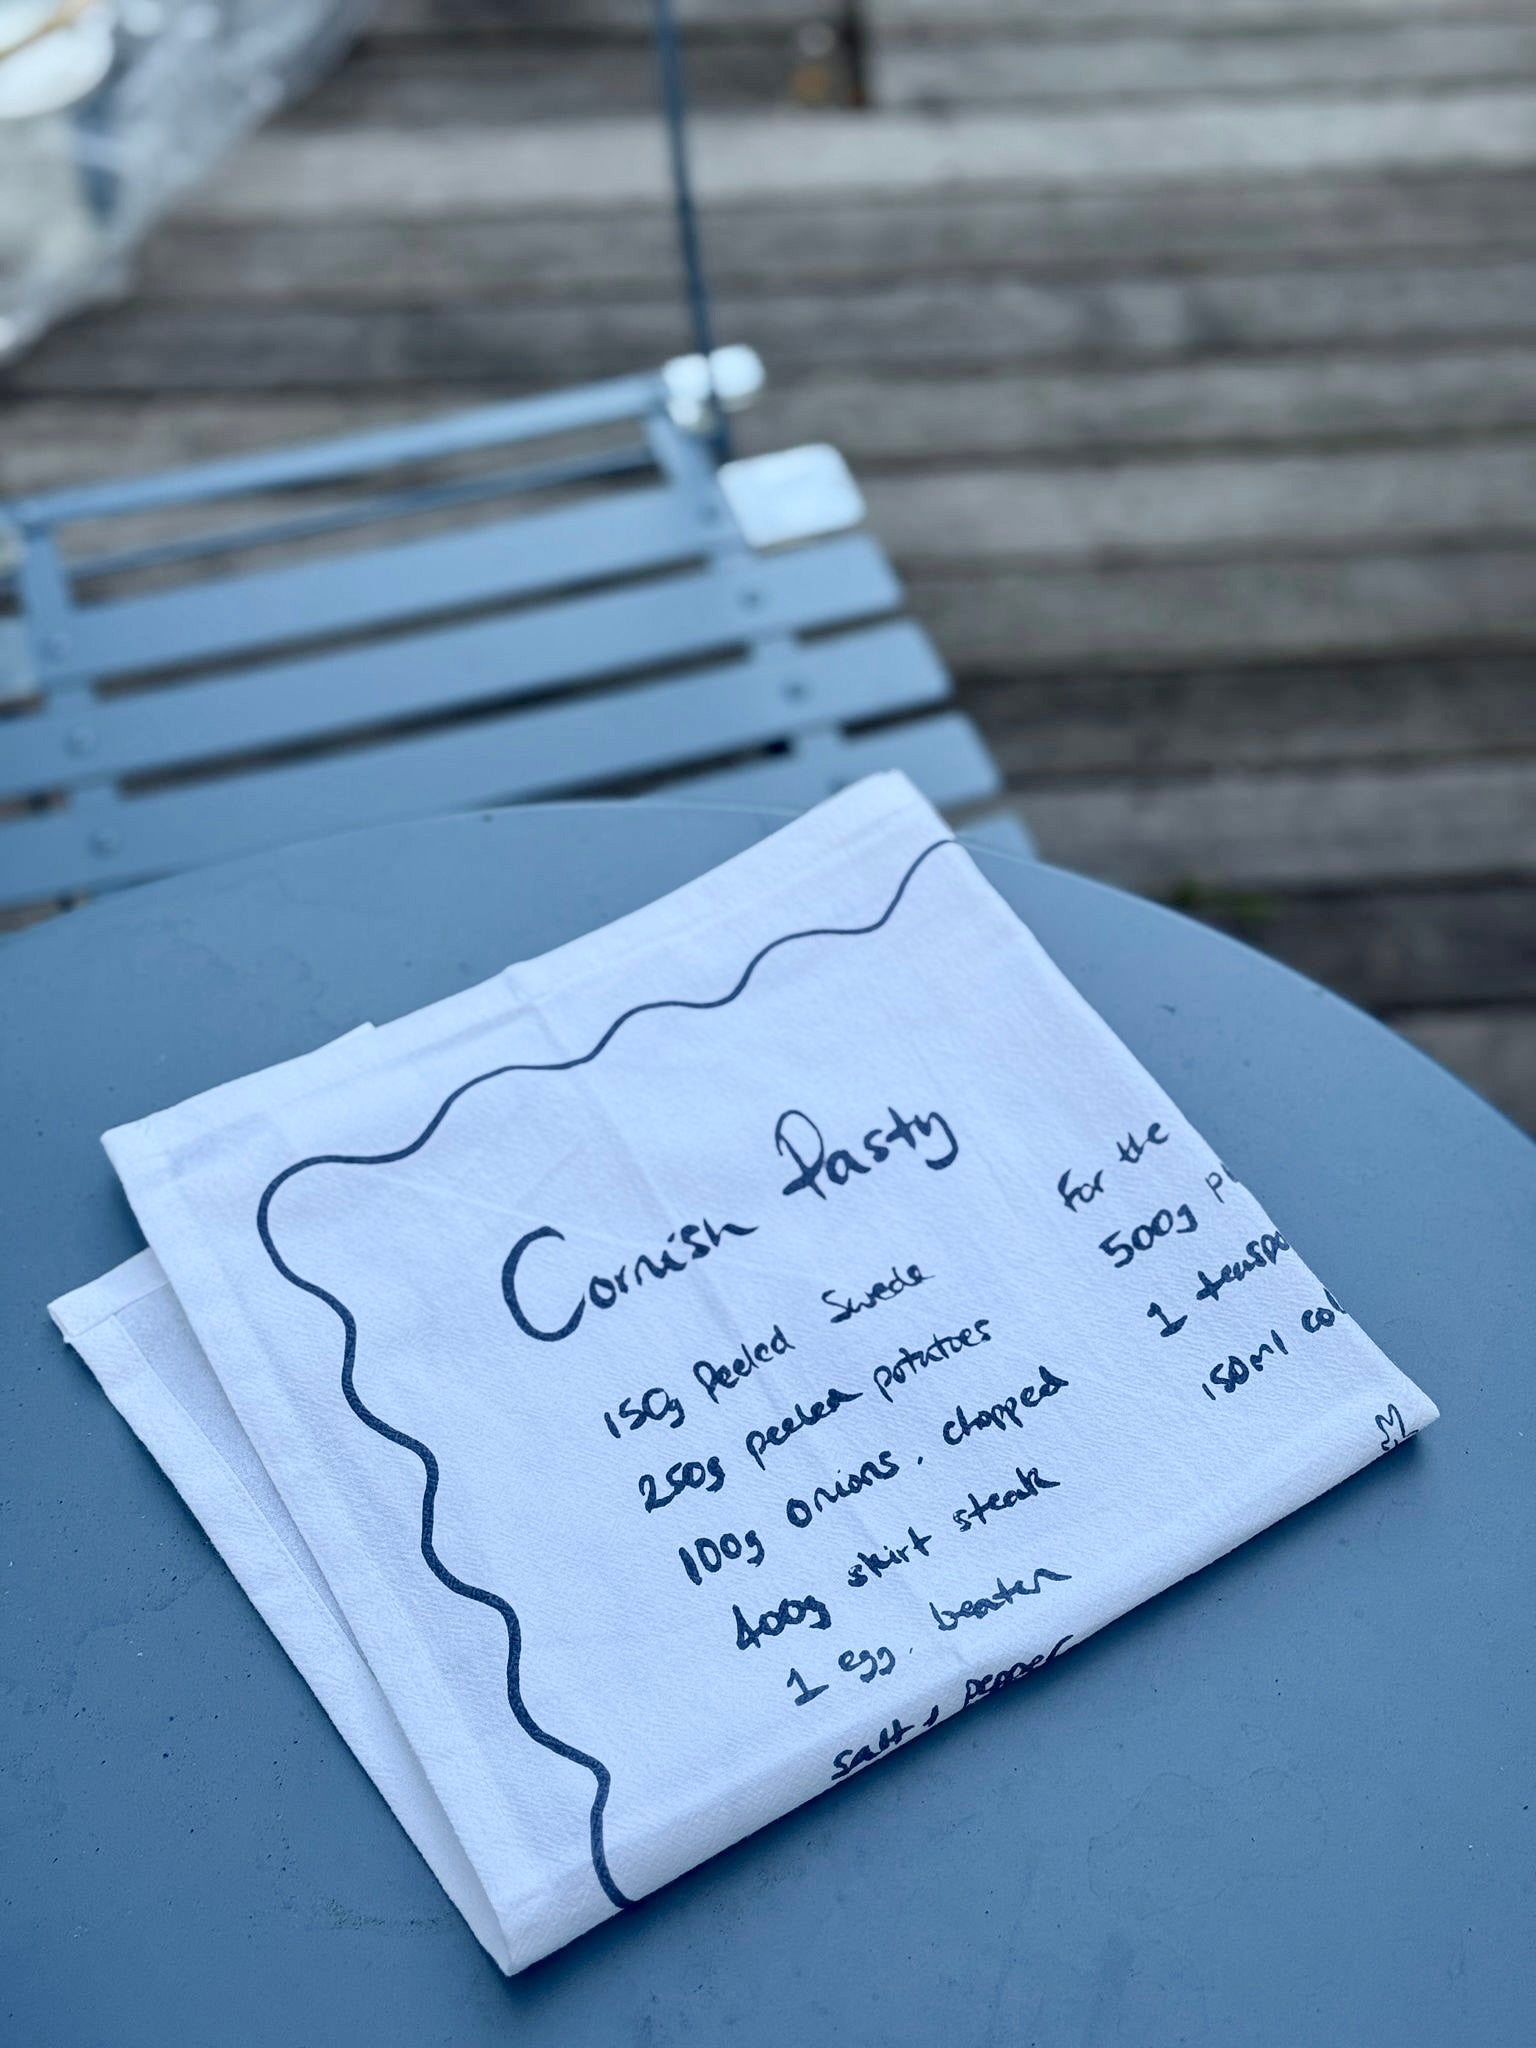 Cornish Pasty
150g Peeled Swede
250g peeled potatoes
100g onions, chopped
400g skirt steak
1 egg, beaten
salt & pepper
For the
500g
1
150ml